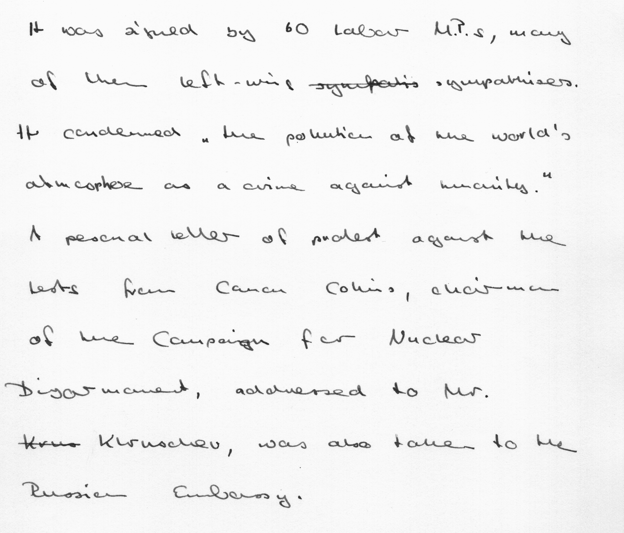 It was signed by 60 Labour M.P.s, many
of them left-wing sympatis sympathisers.
It condemned „the pollution of the world's
atmosphere as a crime against humanity."
A personal letter of protest against the
tests from Canon Collins, chairman
of the Campaign for Nuclear
Disarmament, addressed to Mr.
Krus Khruschev, was also taken to the
Russian Embassy.